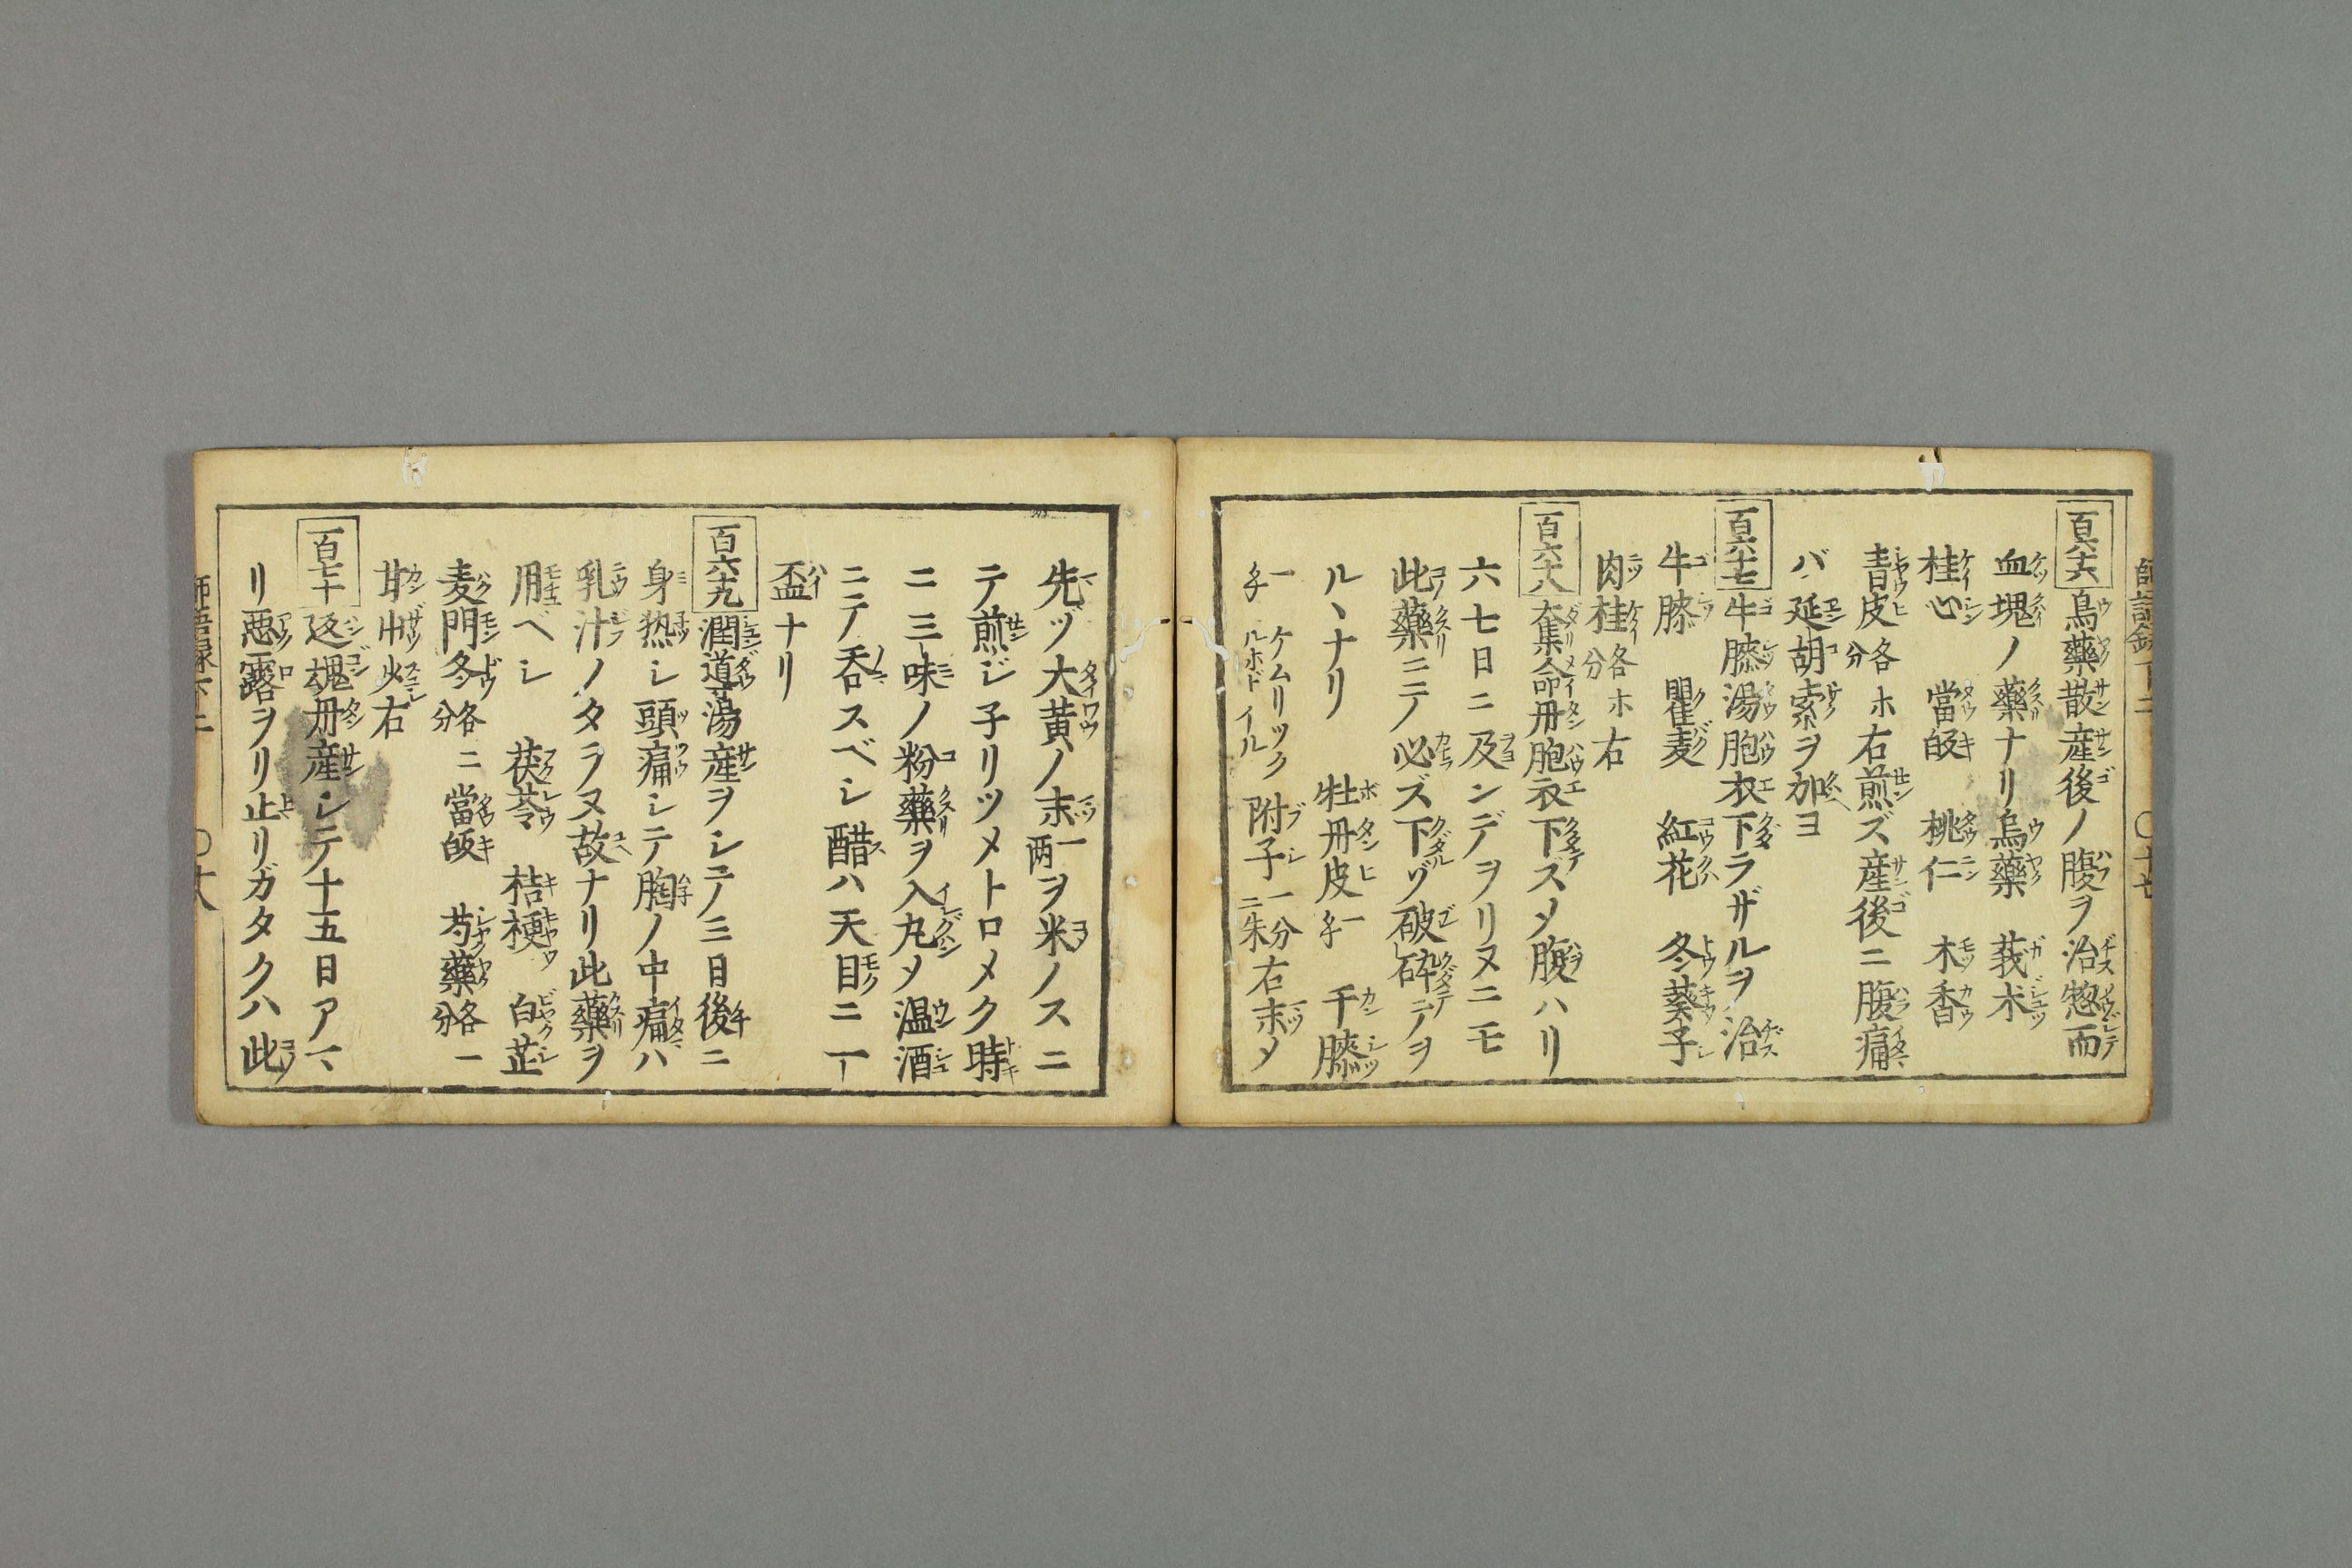 百六六 烏藥散産後ノ腹ヲ治惣而
血塊ノ藥ナリ烏藥 莪朮
桂心 當皈 桃仁 木香
青皮各分ホ右煎ズ産後ニ腹痛
バ延胡索ヲ加ヨ
百六七 牛膝湯胞衣下ラザルヲ治
牛膝 瞿麦 紅花 冬葵子
肉桂各分ホ右
百六十八 奪命丹胞衣下ズメ腹ハリ
六七日ニ及ンデヲリヌニモ
此藥ニテ必ズ下ヅ破砕テヲ
ルヽナリ 牡丹皮一匁 干膝
一匁 ケムリツクルホドイル 附子一分二朱右末メ
先ヅ大黄ノ末一両ヲ米ノスニ
テ煎ジ子リツメトロメク時
ニ三味ノ粉藥ヲ入丸メ温酒
ニテ呑スベシ醋ハ天目ニ一
盃ナリ
百六九 潤道湯産ヲシテ三日後ニ
身热シ頭痛シテ胸ノ中痛ハ
乳汁ノタラヌ故ナリ此藥ヲ
用ベシ 茯苓 桔梗 白芷
麦門冬各分ニ 當皈 芍藥各分一
甘艸炒右
百七十 返魂丹産シテ十五日アマ
リ悪露ヲリ止リガタクハ此